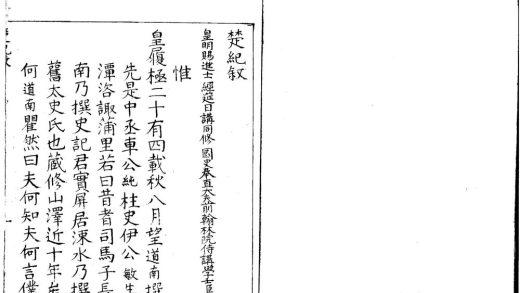 楚紀叙
皇明賜進士經筵日講同修國史奉直大夫前翰林院侍講學士
惟
皇履極二十有四載秋八月望道南撰
先是中丞車公純柱史伊公敏生
潭洛諏蒲里若曰昔者司馬子長
南乃撰史記君實屏居涑水乃撰
舊太史氏也藏修山澤近十年
何道南瞿然曰夫何知夫何言僕